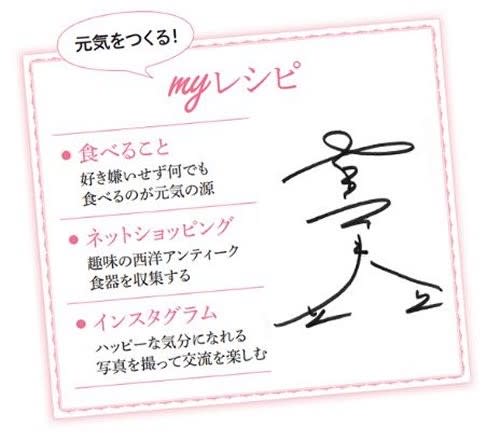 元気をつくる!
myレシピ
● 食べること
好き嫌いせず何でも
食べるのが元気の源
● ネットショッピング
趣味の西洋アンティーク
食器を収集する
● インスタグラム
ハッピーな気分になれる
写真を撮って交流を楽しむ